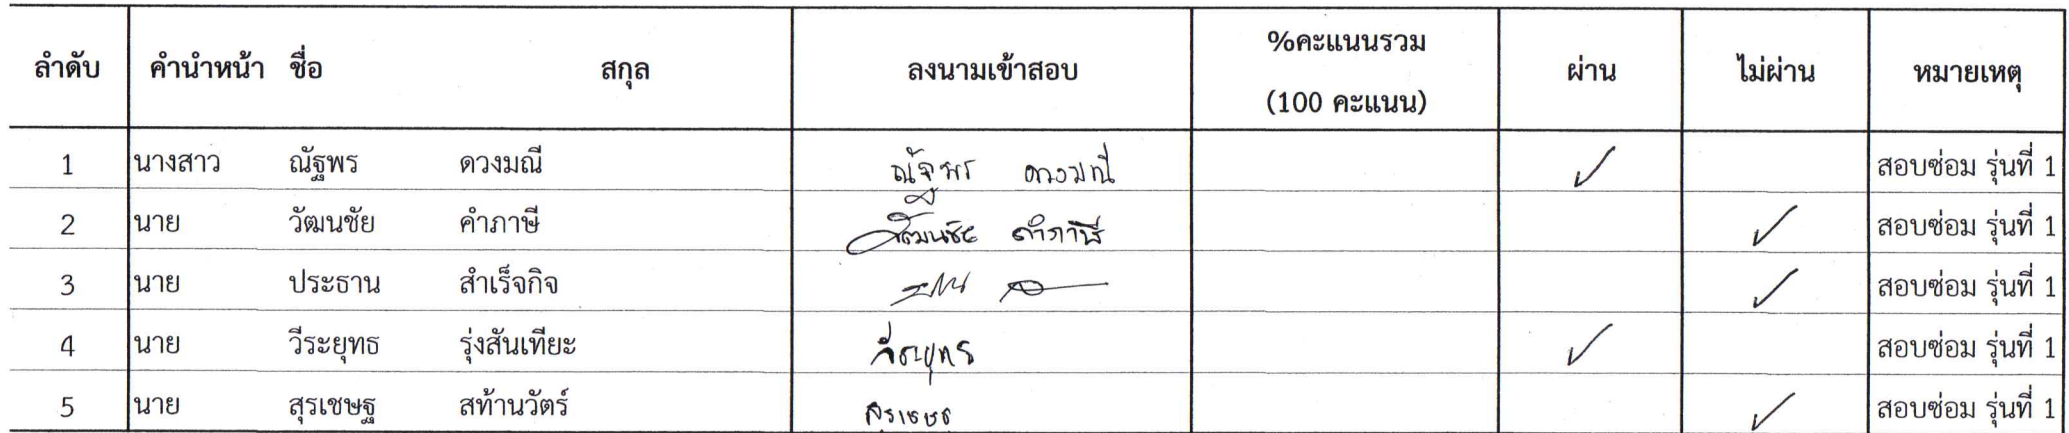 ลำดับ คำนำหน้า ชื่อ สกุล ลงนามเข้าสอบ %คะแนนรวม (100 คะแนน) ผ่าน ไม่ผ่าน หมายเหตุ
1 นางสาว ณัฐพร ดวงมณี ณัฐพร ดวงมณี ✓ สอบซ่อม รุ่นที่ 1
2 นาย วัฒนชัย คำภาษี วัฒนชัย คำภาษี ✓ สอบซ่อม รุ่นที่ 1
3 นาย ประธาน สำเร็จกิจ ✓ สอบซ่อม รุ่นที่ 1
4 นาย วีระยุทธ รุ่งสันเทียะ วีระยุทธ ✓ สอบซ่อม รุ่นที่ 1
5 นาย สุรเชษฐ สท้านวัตร์ สุรเชษฐ ✓ สอบซ่อม รุ่นที่ 1